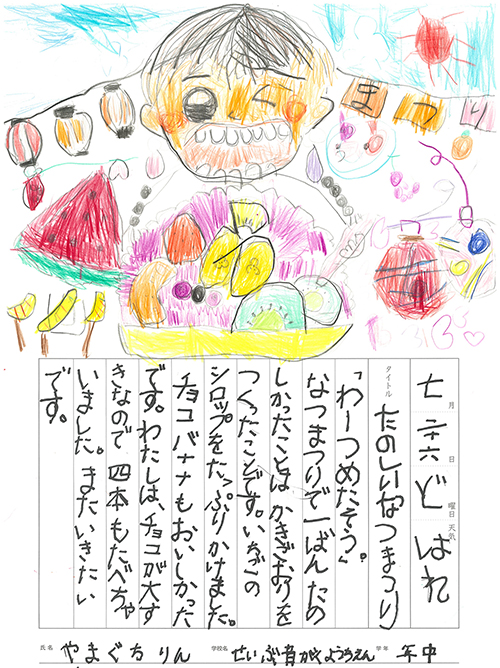 まつり
七月二十六日ど曜日天気はれ
タイトル たのしいなつまつり
「わーつめたそう。」
なつまつりで一ばんたの
しかったことはかきごおりを
つくったことです。いちごの
シロップをたっぷりかけました。
チョコバナナもおいしかった
です。わたしは、チョコが大す
きなので四本もたべちゃ
いました。またいきたい
です。
氏名 やまぐち りん 学校名 せいぶ音がくようちえん 学年 年中